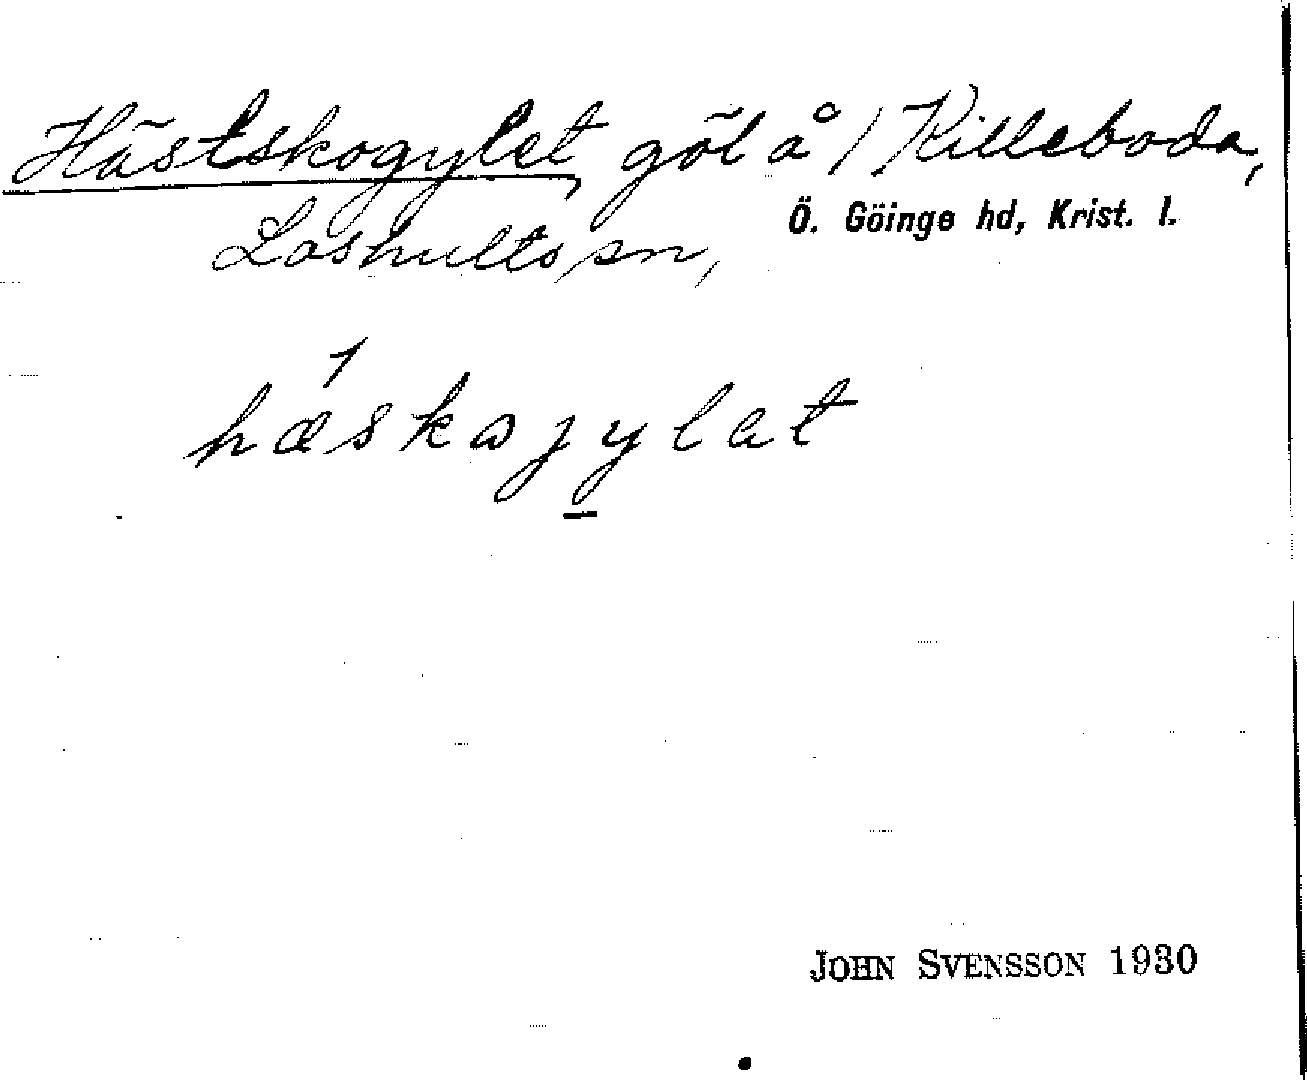 Hästskogylet, göl å / Killeboda,
Loshults sn, Ö. Göinge hd, Krist. l.
1
hæskɷjylat
JOHN SVENSSON 1930